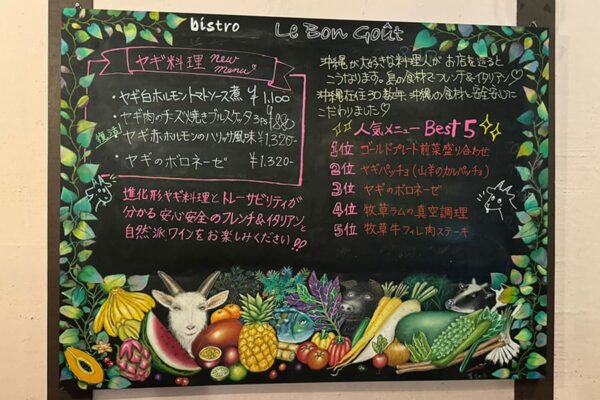 bistro Le Bon Goût
ヤギ料理 new menu
・ヤギ白ホルモントマトソース煮 ¥1,100
・ヤギ肉のチーズ焼きブルスケッタ 3P ¥880
・ヤギ赤ホルモンのハリッサ風味 ¥1,320-
・ヤギのボロネーゼ ¥1,320-
進化形ヤギ料理とトレーサビリティが
分かる安心安全のフレンチ&イタリアンと
自然派ワインをお楽しみください!!
沖縄が大好きな料理人がお店を造ると
こうなります。島の食材でフレンチ&イタリアン♡
沖縄在住30数年、沖縄の食材と
こだわりました♡
人気メニュー Best 5
1位 ゴールドプレート前菜盛り合わせ
2位 ヤギパッチョ(山羊のカルパッチョ)
3位 ヤギのボロネーゼ
4位 牧草ラムの真空調理
5位 牧草牛フィレ肉ステーキ